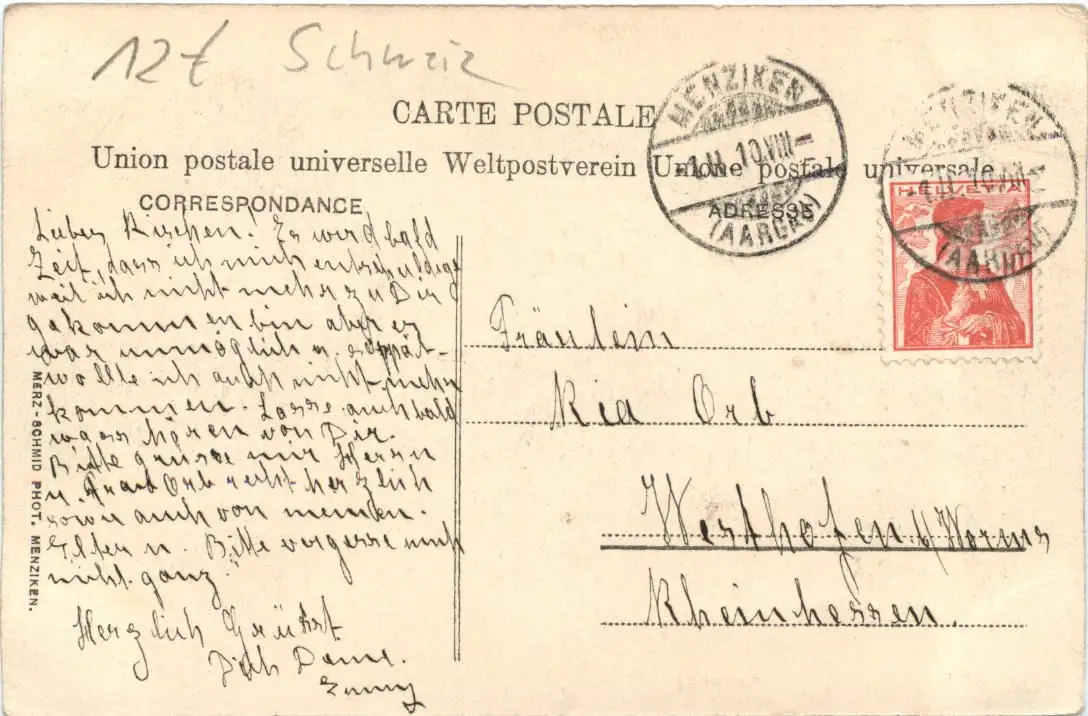 12 Schweiz
CARTE POSTALE
Union postale universelle Weltpostverein Unione postale universale
MENZIKEN
1.II.10.VIII
(AARGAU)
MENZIKEN
(AARGAU)
HELVETIA
CORRESPONDANCE
ADRESSE
Liebes. Es wird bald
Zeit, dass ich mich entschuldige
weil ich nicht mehr zu Dir
gekommen bin aber es
war unmöglich u. so spät
wollte ich auch nicht mehr
kommen. Lasse auch bald
wass hören von Dir.
Bitte grüsse mir Herrn
u. Frau Orb recht herzlich
sowie auch von meinen
Eltern u. Bitte vergesse mich
nicht ganz.
Herzlich Grüsst
Dich Deine
Emmy
Fräulein
Ria Orb
Westhofen b/Worms
Rheinhessen.
MERZ-SCHMID PHOT. MENZIKEN.